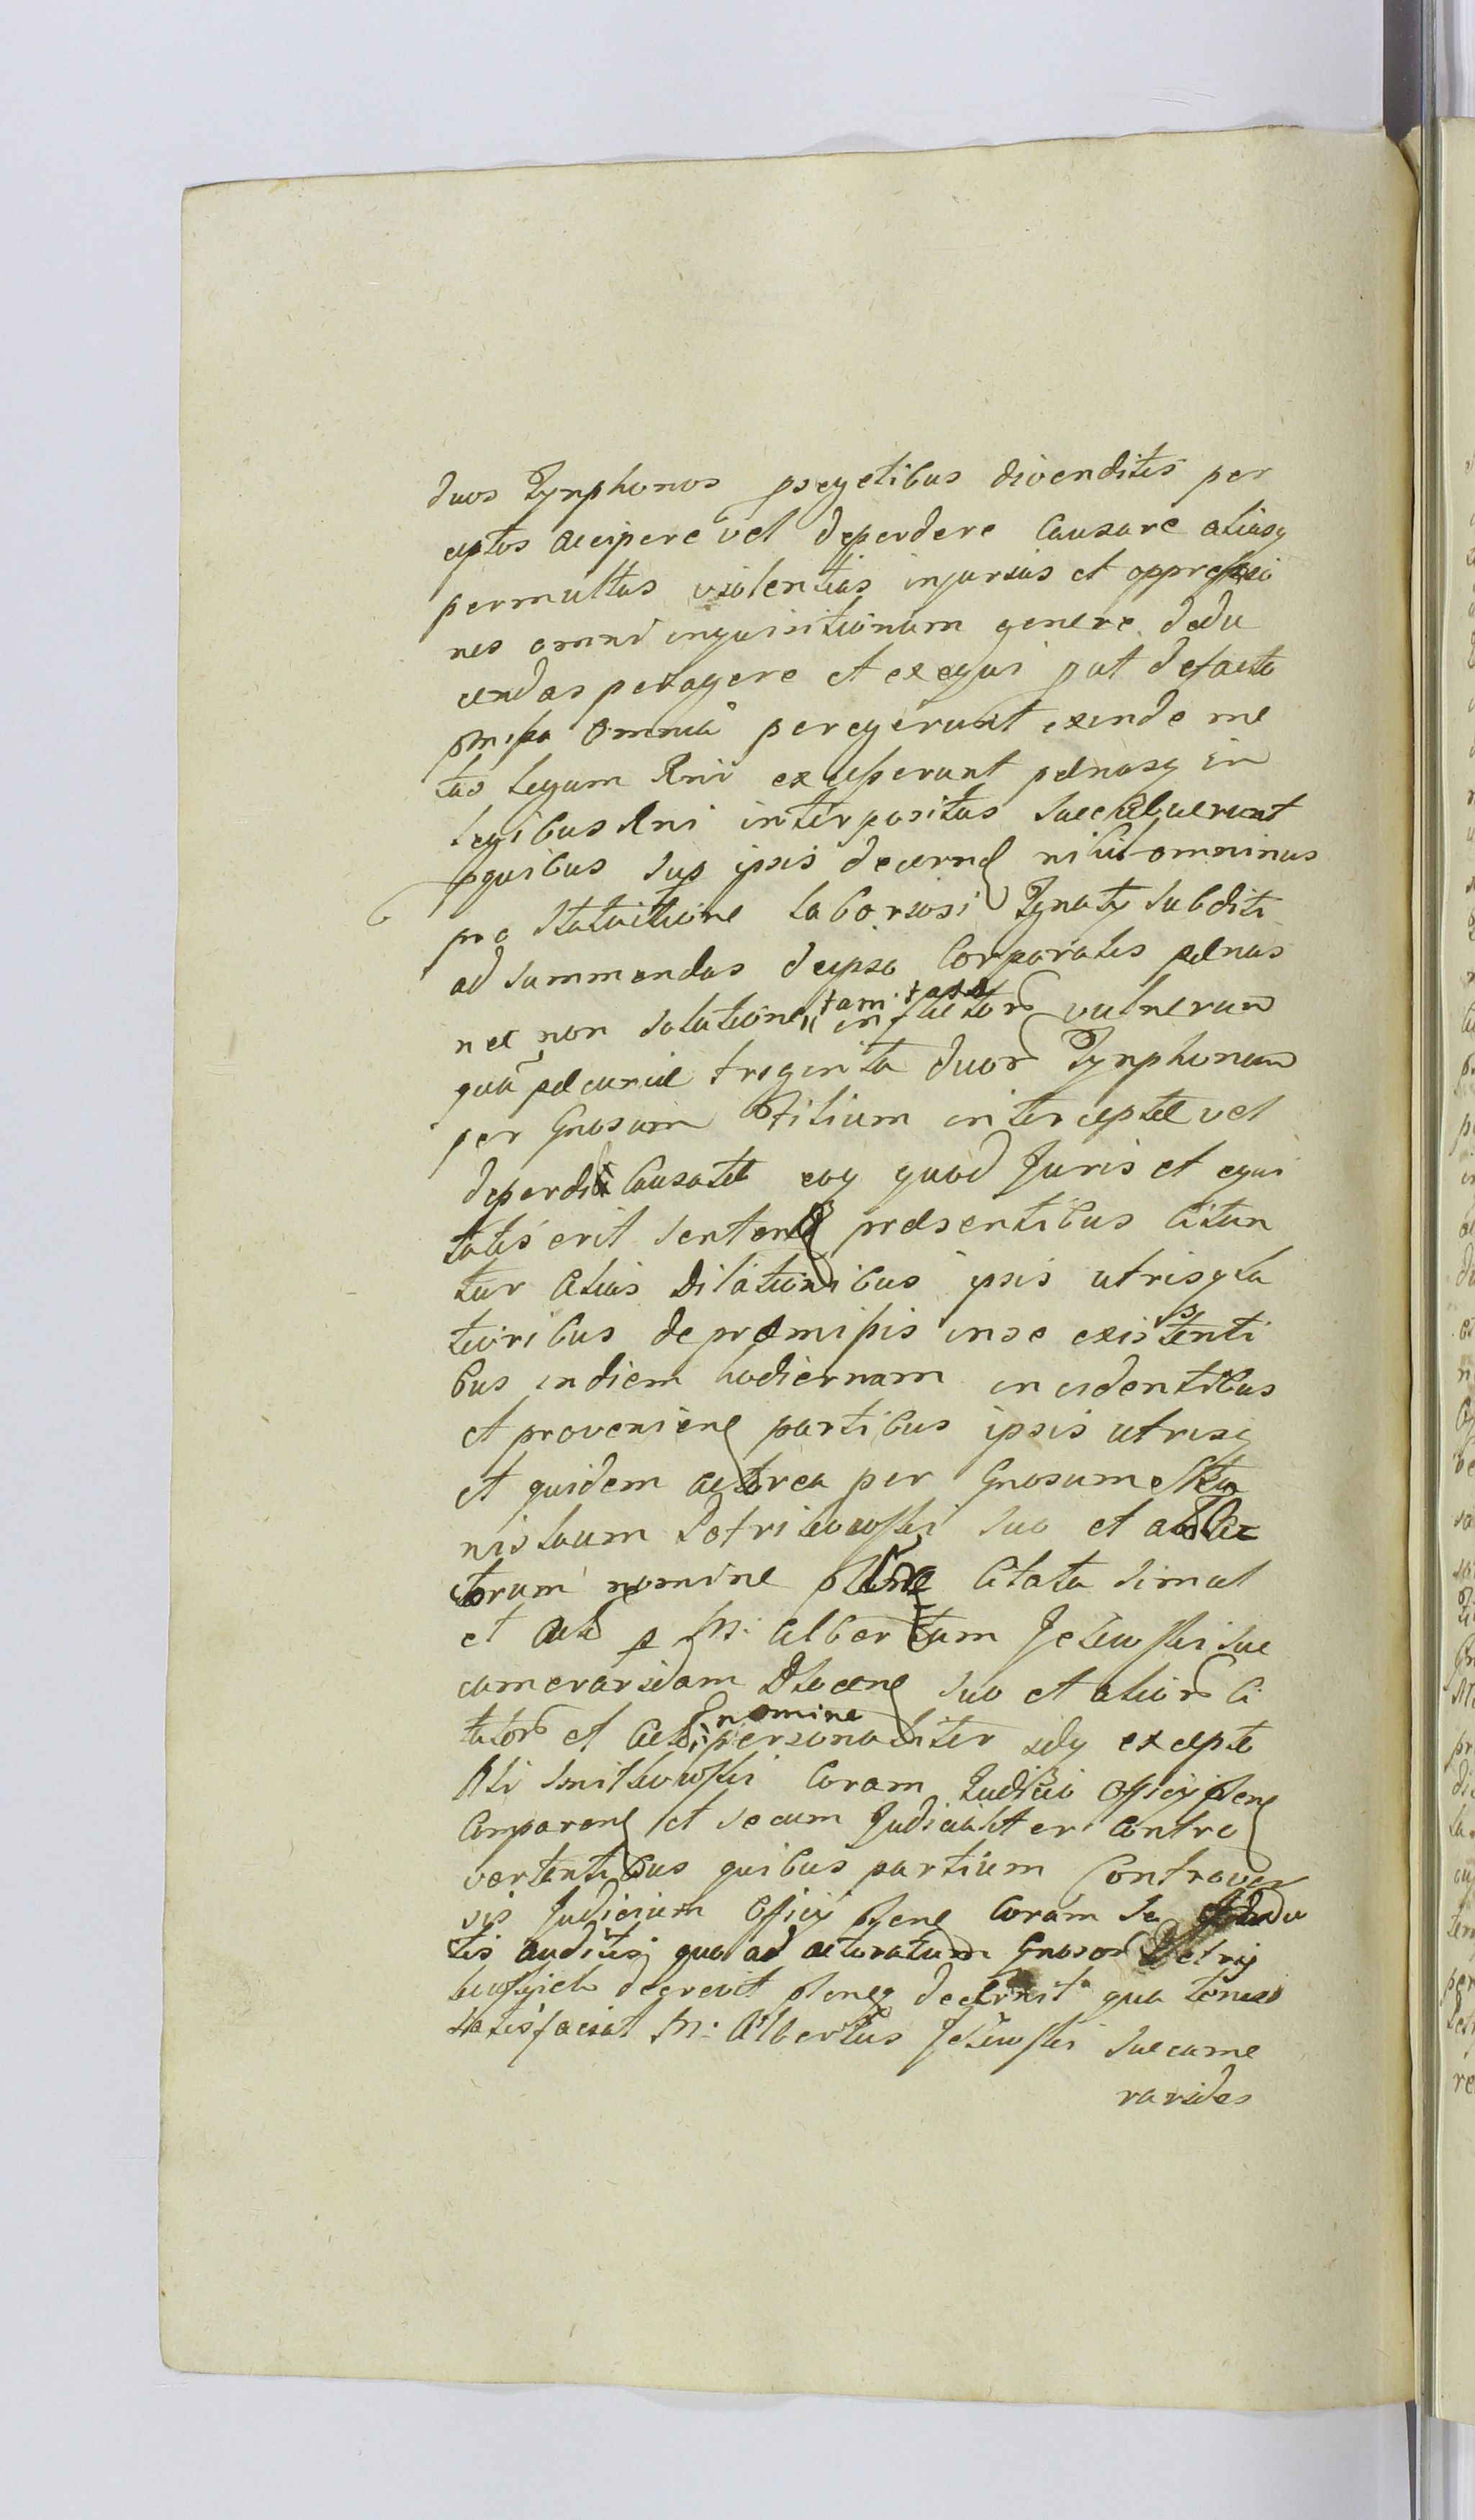 duos Tynphonos psegetibus divenditis per
ceptos accipere vel deperdere Causare aliasq
permultas violentias injurias et oppressio
nes omni inquisitionum genere dedu
cendas peragere et exequi put defacto
pmissa omnia peregerunt exinde me
tas Legum Rni excesserunt pænasq in
Legibus Rni interpositas succubuerunt
pquibus sup ipsis decernen nihilominus
pro Statuitione laboriosi Ignatij subditi
ad summendas deipso Corporales pænas
nec non solutione tam taxæ inflictor vulnerum
qua pecuniæ triginta duor Tynphonum
per Gnosum Filium interceptæ vel
deperdi Causatæ eoq quod Juris et equi
tatis erit senten præsentibus Citan
tur Aliis Dilationibus ipsis utrisq Ca
tioribus de præmissis inse existenti
bus indiem hodiernam incidentibus
et provenien partibus ipsis utrisq
et quidem actorea per Gnosum Sta
nislaum Petrikowski suo et
torum nomine Citata simul
et Act p M: Albertum Jeżewski suc
cameraridam suo et alior Ci
tator et Act nomine personaliter sely excepto
Smilkowski Coram Judicio Officij psen
Comparen et secum Judicialiter Contro
vertentibus quibus partium Controver
sis Judicium Officij psen Coram se dedu
tis auditisq quo ad actoratum Gnosor Petry
kowskich decrevit psenq decernit qua tonus
satisfaciat M: Albertus Jeżewski succame
rarides